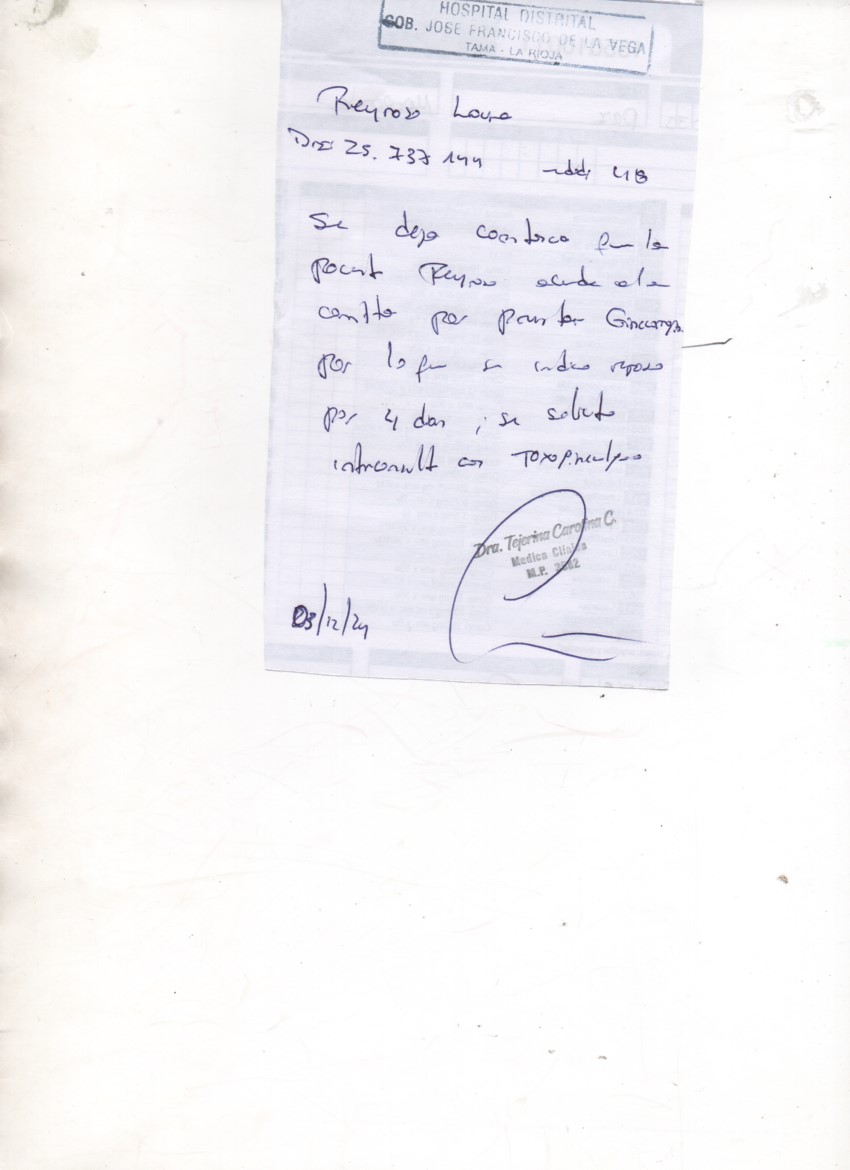 HOSPITAL DISTRITAL
GOB. JOSE FRANCISCO DE LA VEGA
TAMA - LA RIOJA
Reynoso Laura
DNI 25.737.144
edad 48
Se deja constancia que la
paciente Reynoso acude a la
consulta por presentar
por lo que se indica reposo
por 4 dias ; se solicita
interconsulta con
Dra. Tejerina Carolina C.
Medica Clinica
M.P.
03/12/24